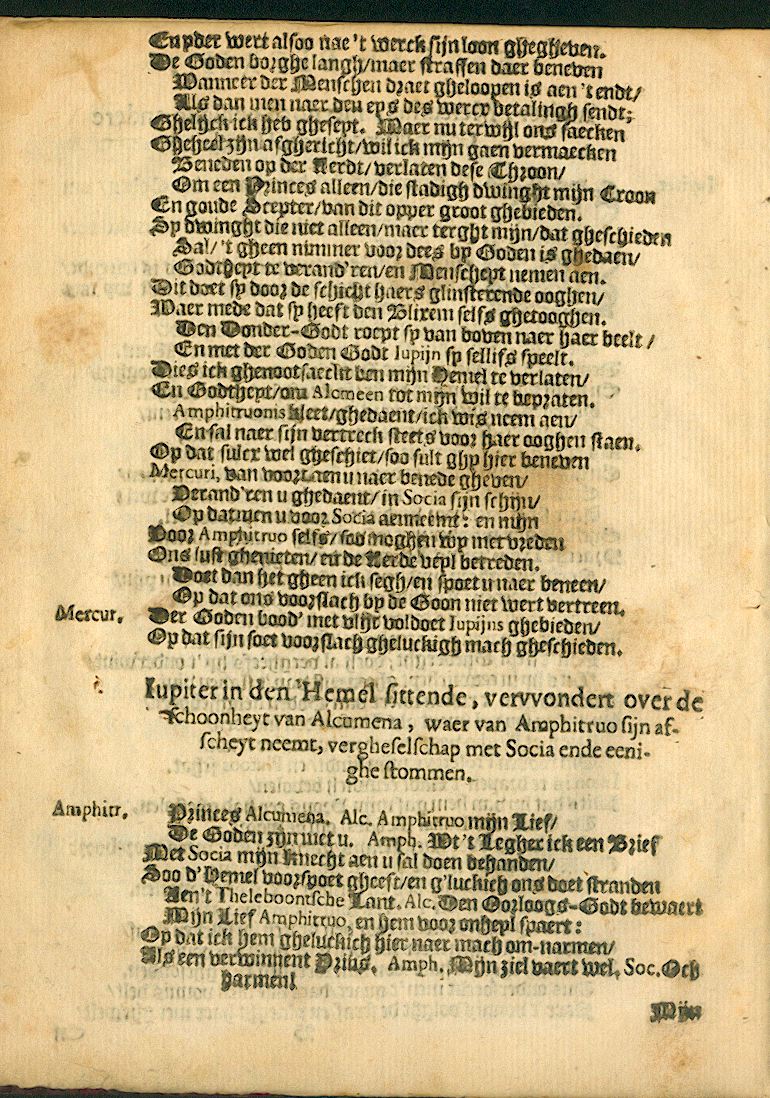 En yder wert alsoo nae 't werck sijn loon ghegheven.
De Goden borghe langh/maer straffen daer beneven
Wanneer der Menschen draet gheloopen is aen 't endt/
Als dan men naer den eys des wercx betalingh sendt;
Ghelijck ick heb gheseyt. Maer nu terwijl ons saecken
Gheheel zijn afghericht/wil ick mijn gaen vermaecken
Beneden op der Aerdt/verlaten dese Throon/
Om een Princes alleen/die stadigh dwinght mijn Croon
En goude Scepter/van dit opper groot ghebieden.
Sy dwinght die niet alleen/maer terght mijn/dat gheschieden
Sal/'t gheen nimmer voor dees by Goden is ghedaen/
Godtheyt te verand'ren/en Menscheyt nemen aen.
Dit doet sy door de schicht haers glinsterende ooghen/
Waer mede dat sy heeft den Blixem selfs ghetooghen.
Den Donder-Godt roept sy van boven naer haer beelt/
En met der Goden Godt Iupijn sy sellifs speelt.
Dies ick ghenootsaeckt ben mijn Hemel te verlaten/
En Godtheyt/om Alcmeen tot mijn wil te bepraten.
Amphitruonis kleet/ghedaent/ick wis neem aen/
En sal naer sijn vertreck steets voor haer ooghen staen.
Op dat sulcx wel gheschiet/soo sult ghy hier beneven
Mercuri, van voort aen u naer benede gheven/
Verand'ren u ghedaent/in Socia sijn schijn/
Op datmen u voor Socia aenneemt: en mijn
Voor Amphitruo selfs/soo moghen wy met vreden
Ons lust ghenieten/en de Aerde veyl betreden.
Doet dan het gheen ick segh/en spoet u naer beneen/
Op dat ons voorslach by de Goon niet wert vertreen.
Mercur. Der Goden bood' met vlijt voldoet Iupijns ghebieden/
Op dat sijn soet voorslach gheluckigh mach gheschieden.
Iupiter in den Hemel sittende, vervvondert over de
schoonheyt van Alcumena, waer van Amphitruo sijn af-
scheyt neemt, vergheselschap met Socia ende eeni-
ghe stommen.
Amphitr. Princes Alcumena. Alc. Amphitruo mijn Lief/
De Goden zijn met u. Amph. Wt 't Legher ick een Brief
Met Socia mijn knecht aen u sal doen behanden/
Soo d'Hemel voorspoet gheeft/en g'luckich ons doet stranden
Aen't Theleboontsche Lant. Alc. Den Oorloogs-Godt bewaert
Mijn Lief Amphitruo, en hem voor onheyl spaert:
Op dat ick hem gheluckich hier naer mach om-narmen/
Als een verwinnent Prins. Amph. Mijn ziel vaert wel. Soc. Och
harmen!
Mijn